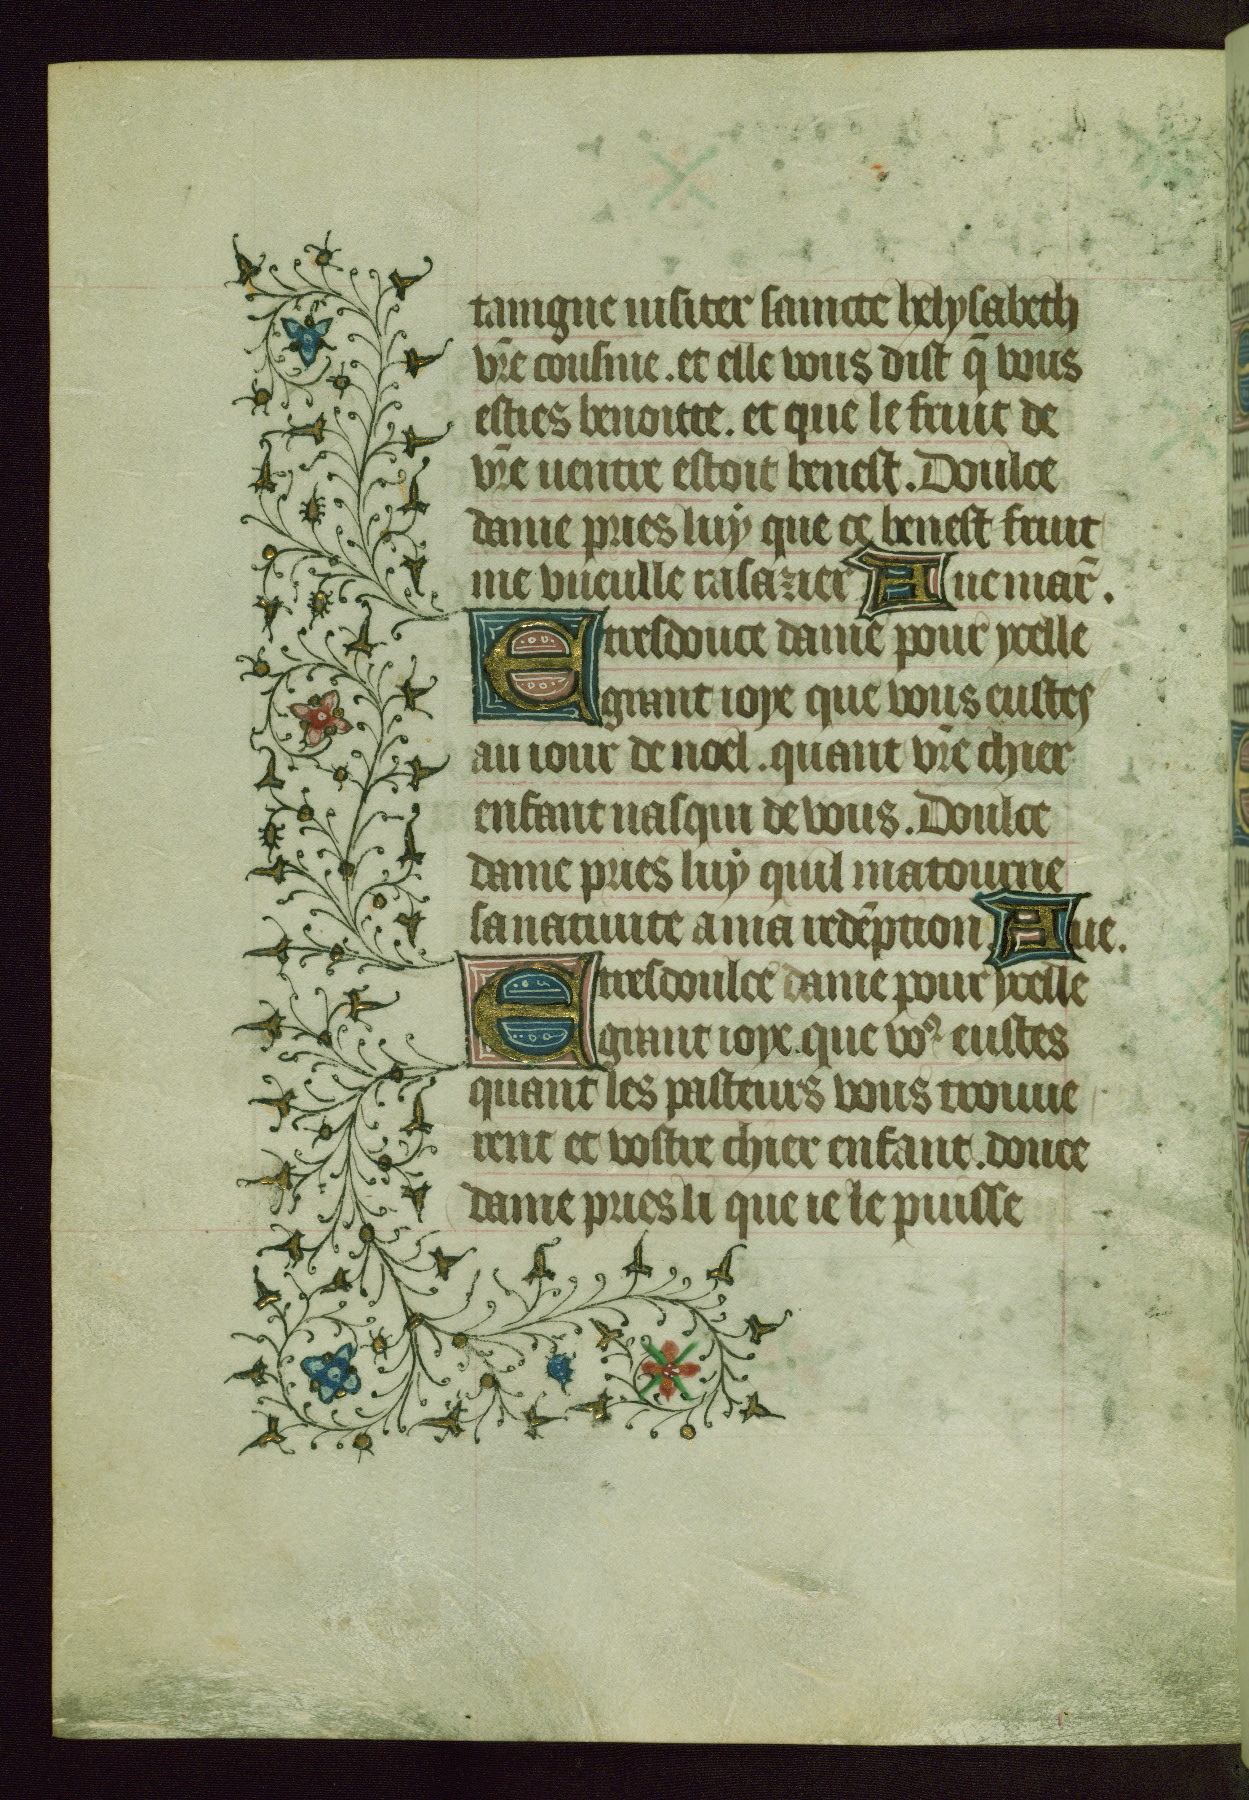 taingne uisiter saincte helysabeth
vr̄e cousine. et elle vous dist q̄ vous
esties benoitte. et que le fruit de
vr̄e uentre estoit benest. Doulce
dame pries luy que ce benest fruit
me vueulle rasazier Aue mar̄.
E tresdouce dame pour ycelle
grant ioye que vous eustes
au iour de noel. quant vr̄e chier
enfant nasqui de vous. Doulce
dame pries luy quil matourne
sa natiuite a ma redēption. Aue.
E tresdoulce dame pour ycelle
grant ioye. que vo⁹ eustes
quant les pasteurs vous trouue
rent et vostre chier enfant. douce
dame pries li que ie le puisse